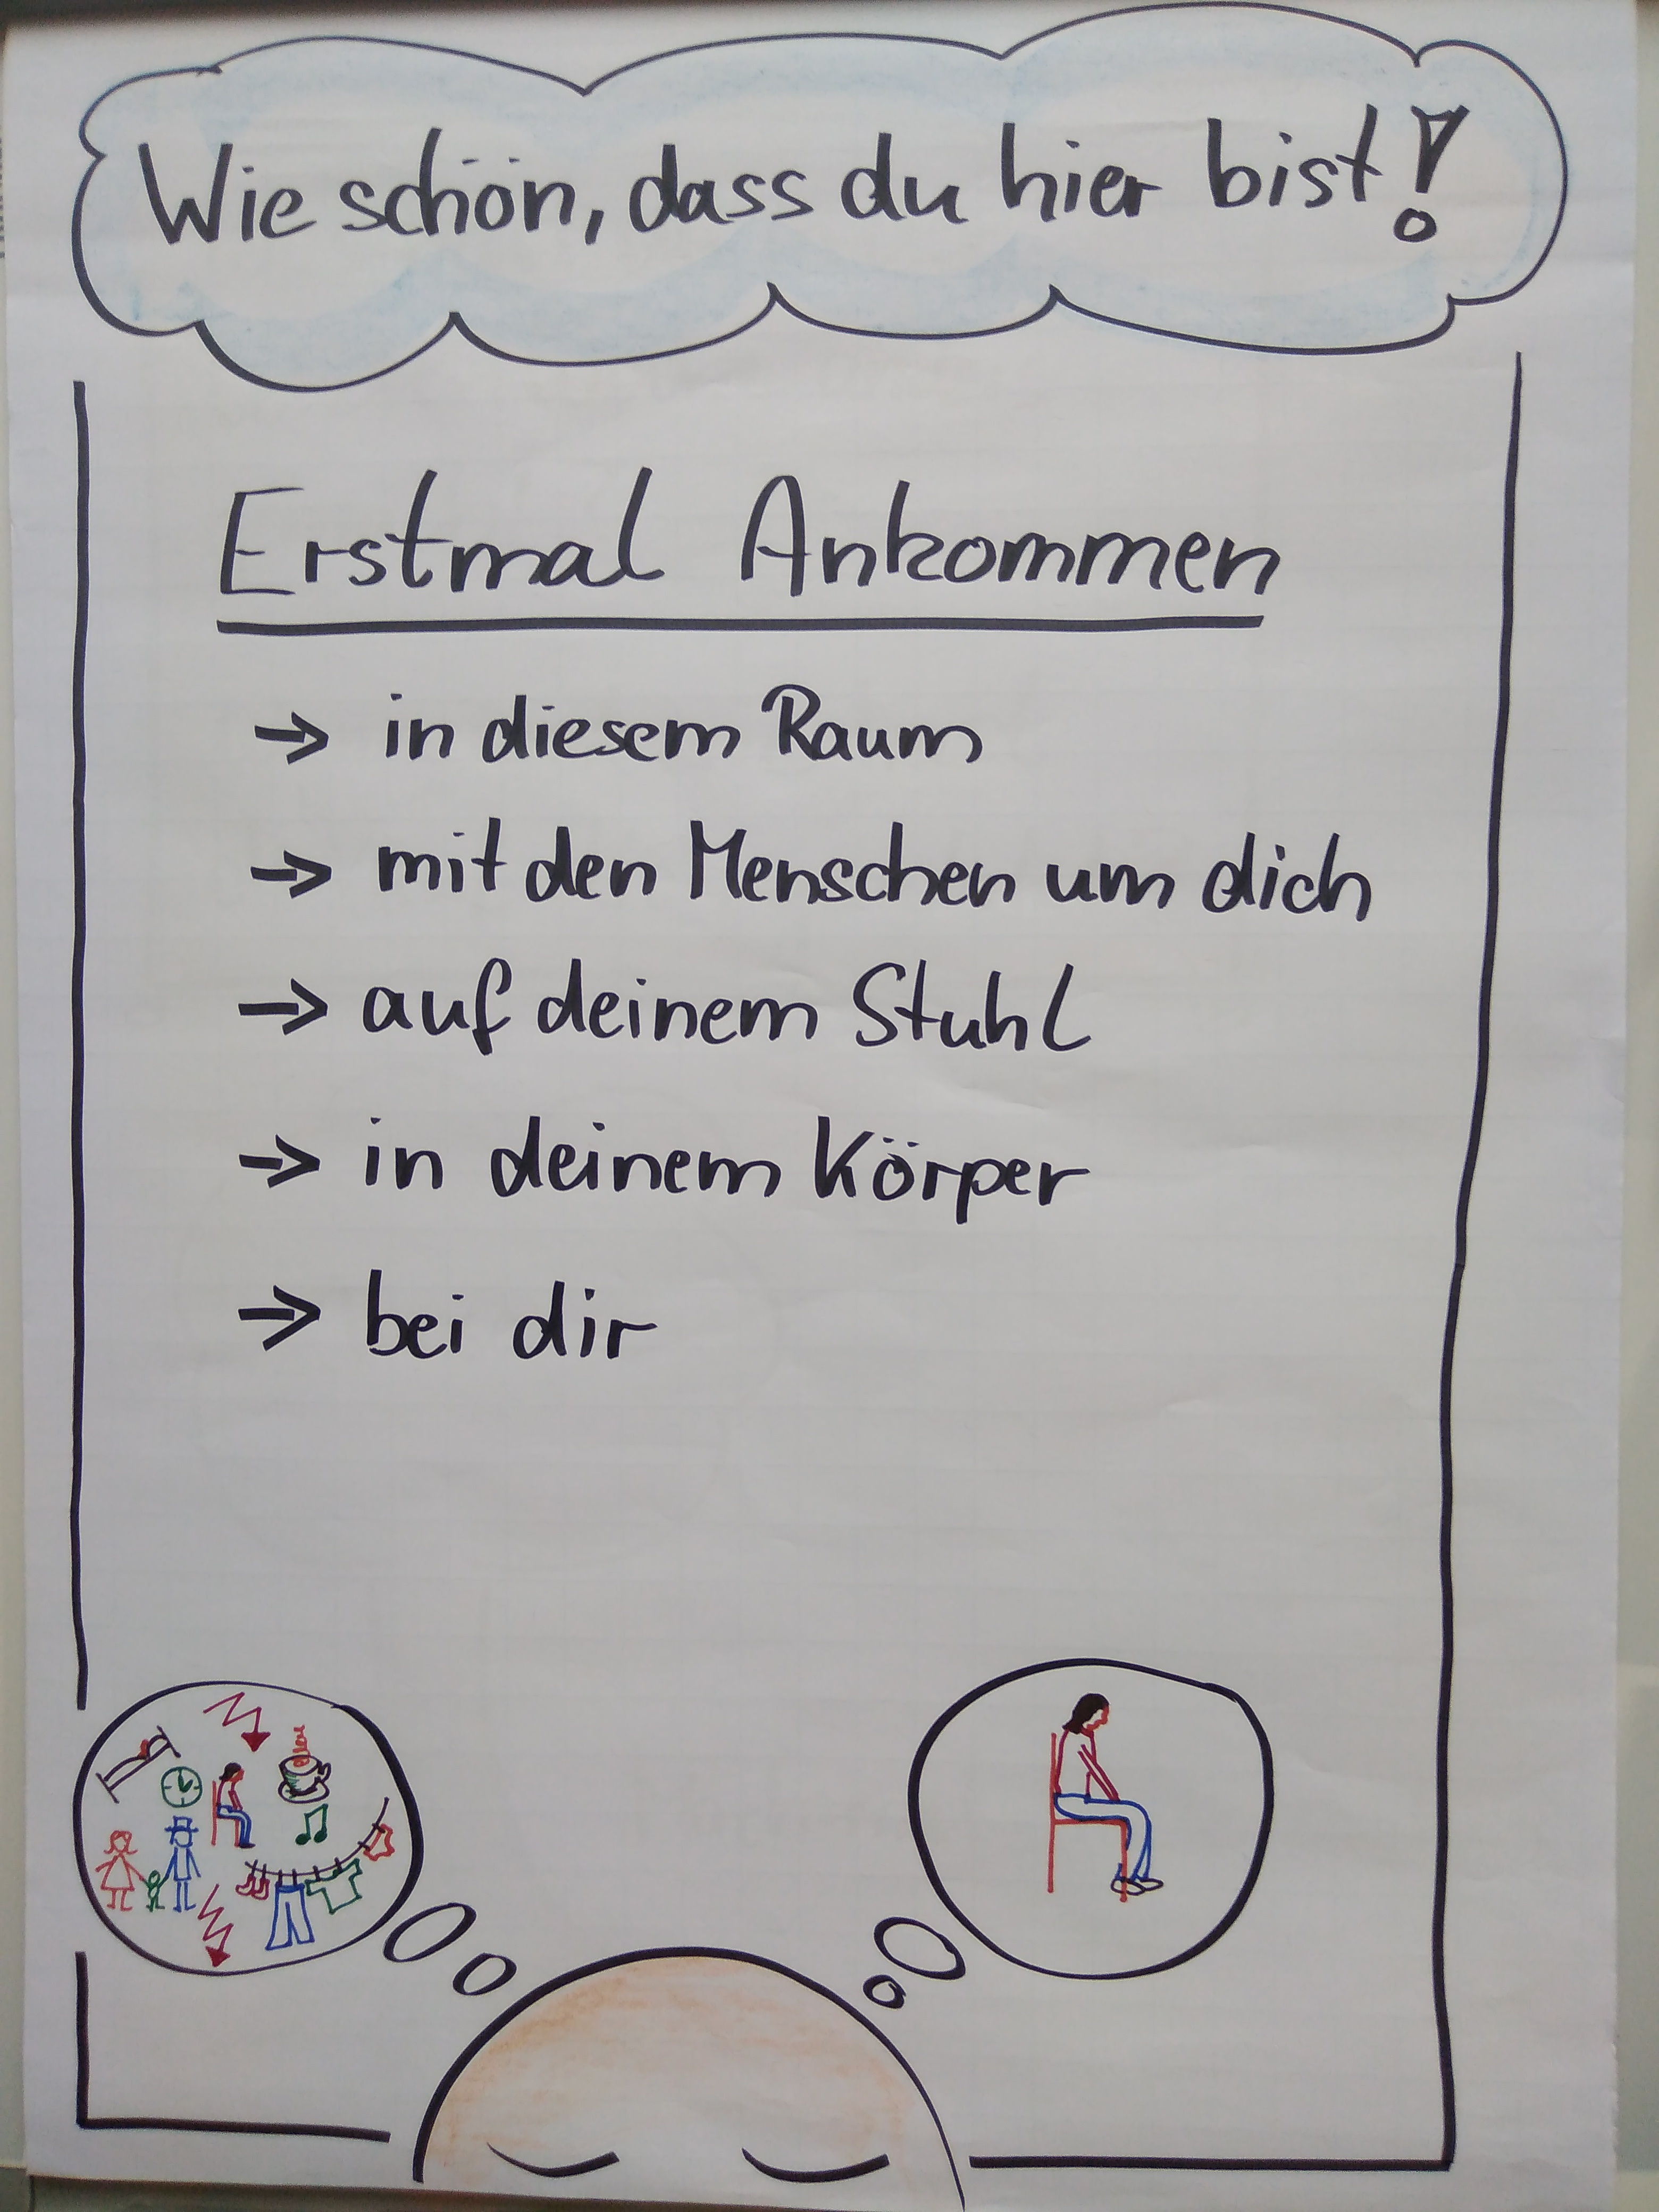 Wie schön, dass du hier bist!
Erstmal Ankommen
→ in diesem Raum
→ mit den Menschen um dich
→ auf deinem Stuhl
→ in deinem Körper
→ bei dir